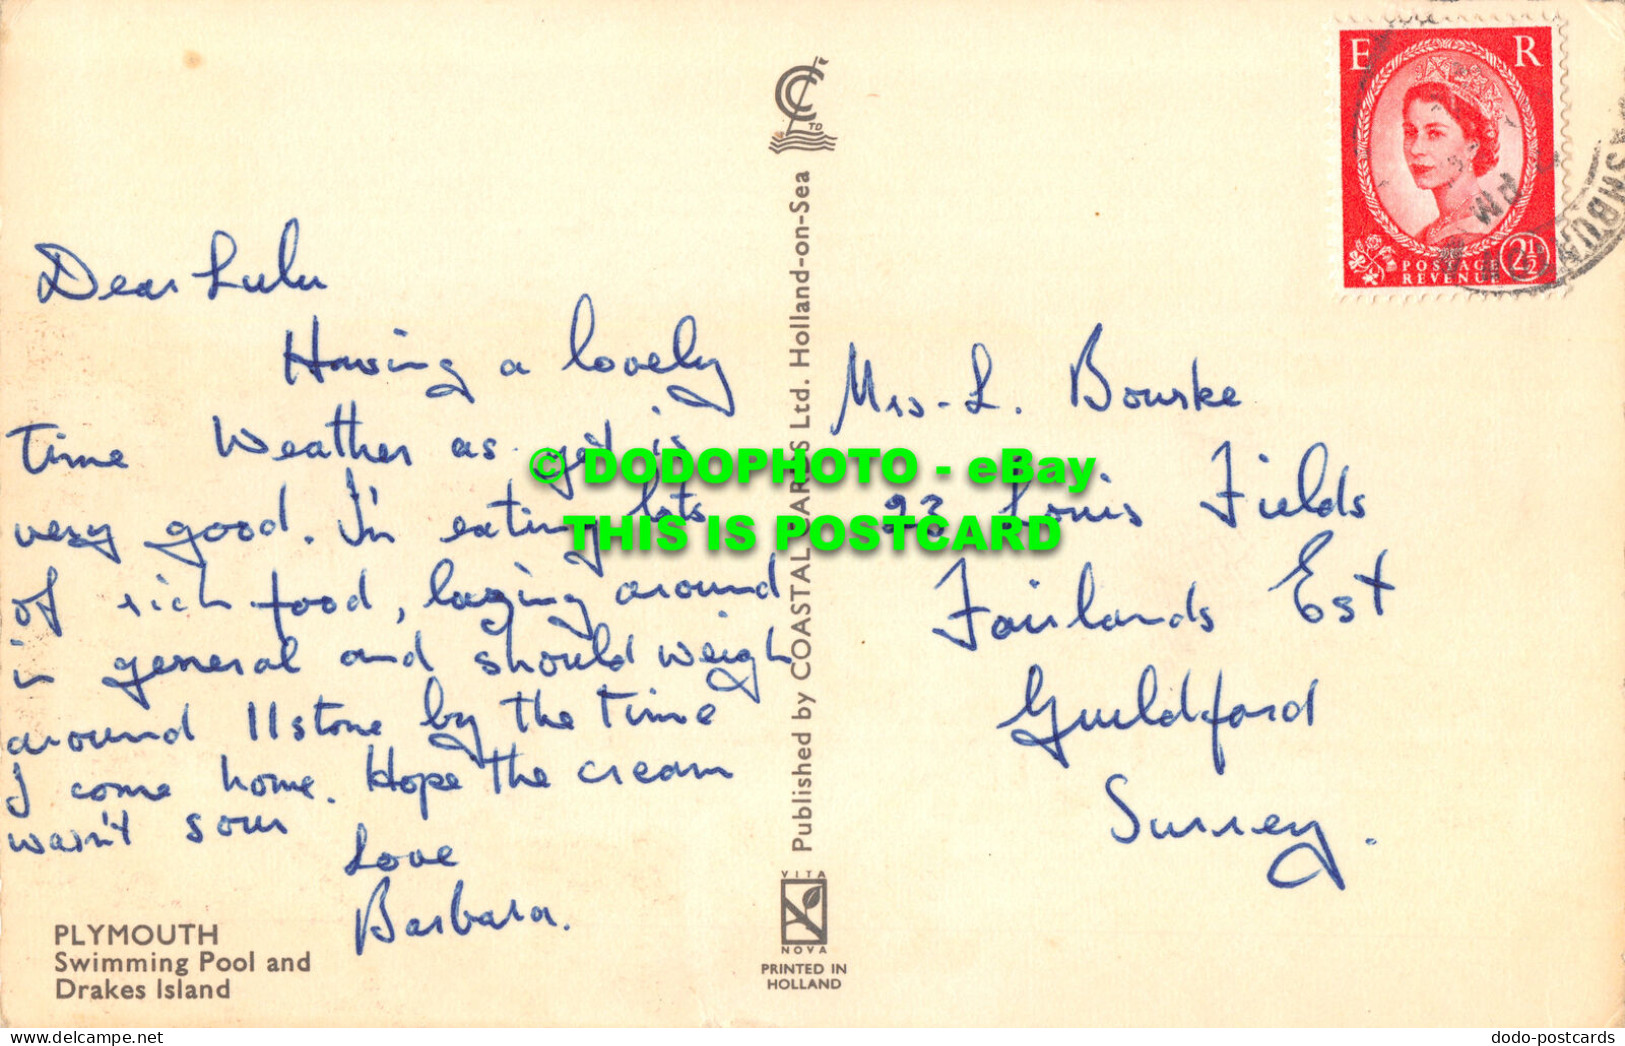 E R
POSTAGE
REVENUE 2½
PM
C C
LTD
Dear Lulu
Having a lovely
time Weather as yet is
very good. I'm eating lots
of rich food, lazing around
in general and should weigh
around 11 stone by the time
I come home. Hope the cream
wasn't sour
Love
Barbara.
PLYMOUTH
Swimming Pool and
Drakes Island
Published by COASTAL CARDS Ltd. Holland-on-Sea
VITA
NOVA
PRINTED IN
HOLLAND
Mrs. L. Bourke
23 Louis Fields
Fairlands Est
Guildford
Surrey.
© DODOPHOTO - eBay
THIS IS POSTCARD
dodo-postcards